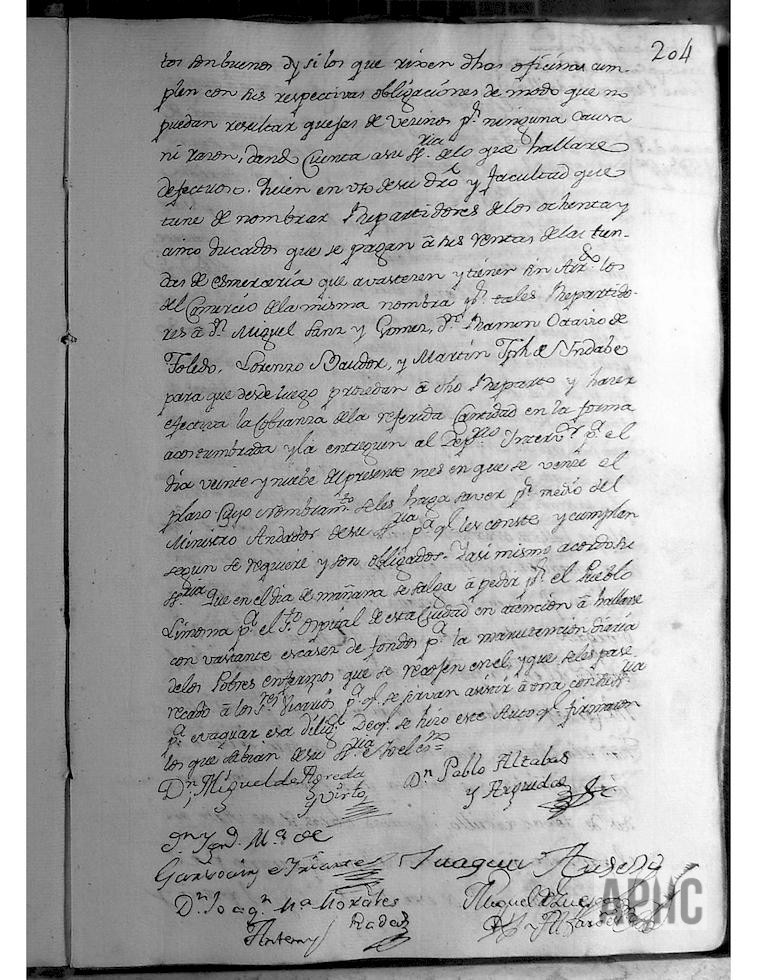 204
tos son buenos y si los que rixen dhas oficinas cum-
plen con sus respectivas obligaciones de modo que no
puedan resultar quejas de vecinos pr. ninguna causa
ni razon, dando Cuenta a su Sria. de lo que hallare
defectuoso. Quien en vso de su dro y facultad que
tiene de nombrar Repartidores de los ochenta y
cinco ducados que se pagan â las rentas de las tien-
das de esmerceria que avasteren y tienen sin los
del Comercio de la misma nombra pr. tales Repartido-
res â Dn. Miguel Sanz y Gomez, Dn. Ramon Octavio de
Toledo, Lorenzo y Martin Jph de Yndabe
para que desde luego procedan â dho Reparto y hacer
efectiva la Cobranza de la referida Cantidad en la forma
acostumbrada y la entreguen al pa. el
dia veinte y nuebe del presente mes en que se vence el
plazo. Cuyo nombramto. se les haga saver pr. medio del
Ministro Andador de su Sria pa. qe. les conste y cumplan
segun se requiere y son obligados. Y asi mismo acordo su
Sria. Que en el dia de mañana se salga â pedir pr. el Pueblo
Limosna pa. el Sto. Ospital de esta Ciudad en atencion â hallarse
con vastante escasez de fondos pa. la manutencion diaria
de los Pobres enfermos que se recojen en el, y que se les pase
recado â los Sres. Vicarios pa. qe. se sirvan asistir â
pa. evaquar esa dilig. De qe. se hizo este Auto qe. firmaron
los que sabian de su Sria. e Yo el esno.=
Dn. Miguel de Agreda
y Virto
Dn. Pablo Altabas
y Arguedas
Dn. Ygno. Ma. de
Garbocin e Yriarte
Dn. Joaqn. Ma. Morales
Rada
Antemy
Miguel
APHC